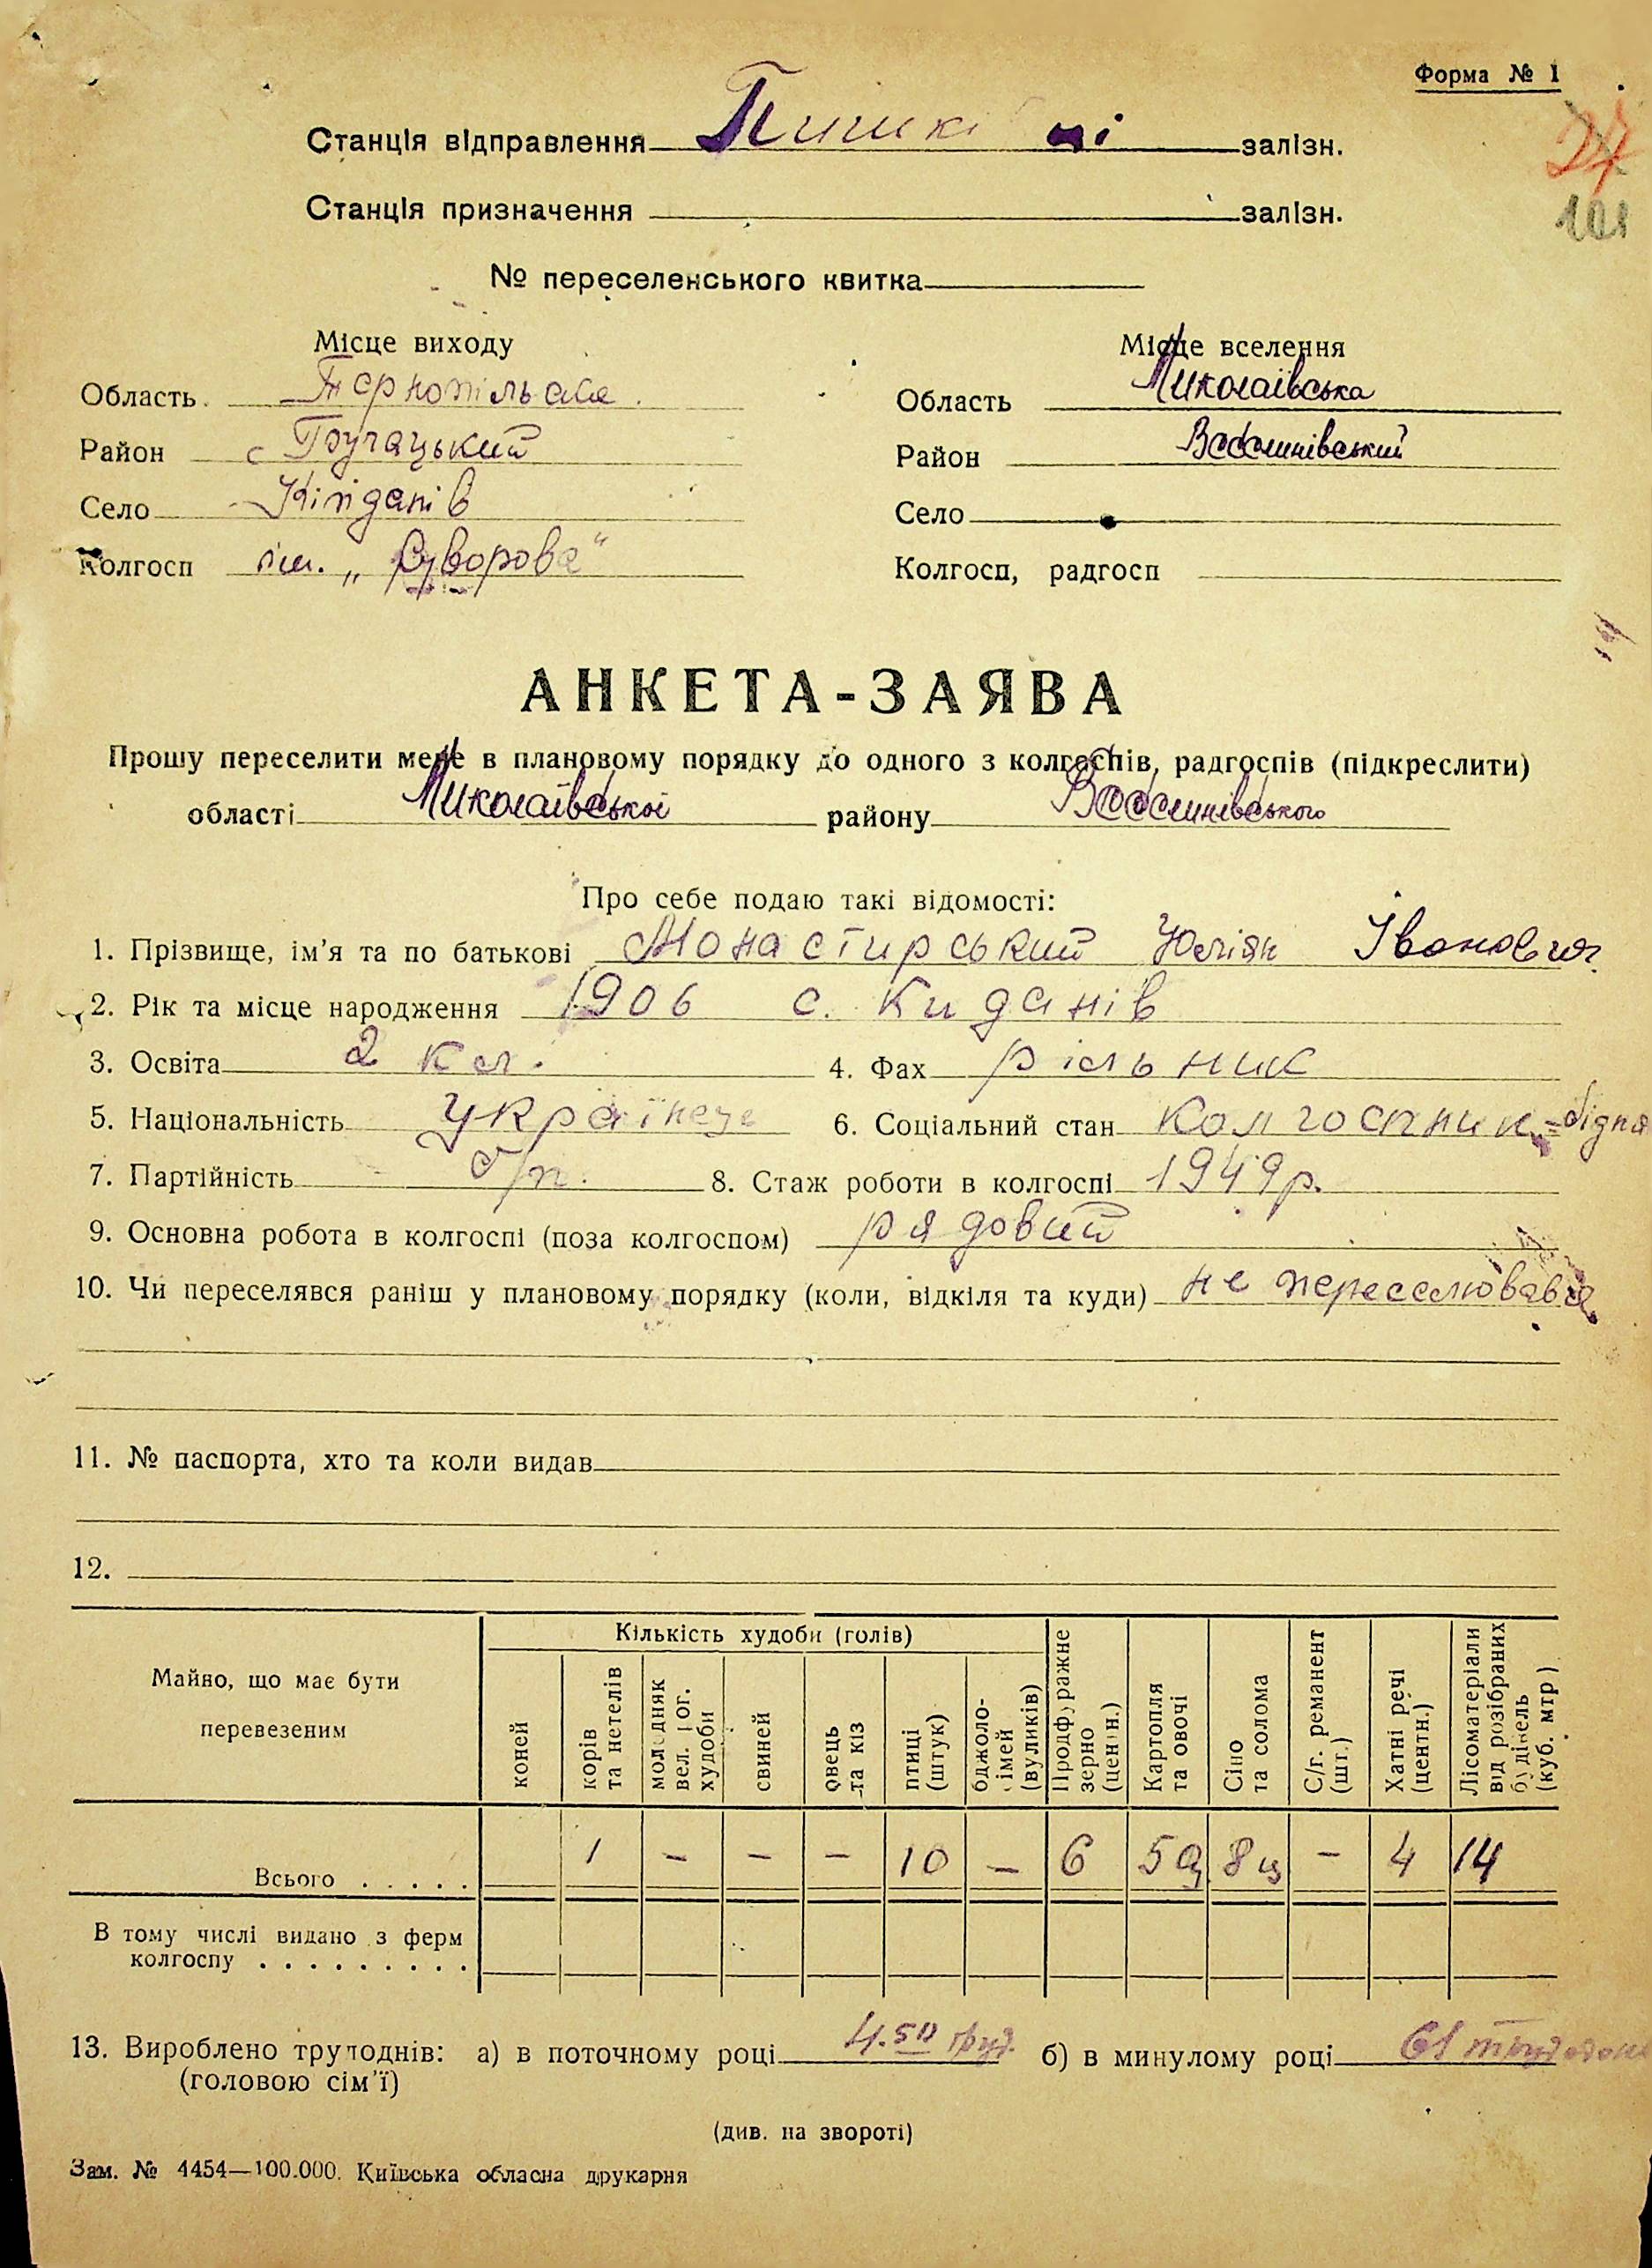 Форма № 1
27
101
Станція відправлення залізн.
Станція призначення залізн.
№ переселенського квитка
Місце виходу
Область Тернопільська
Район Бучацький
Село Кійданів
Колгосп ім. „Суворова“
Місце вселення
Область Миколаївська
Район
Село
Колгосп, радгосп
АНКЕТА-ЗАЯВА
Прошу переселити мене в плановому порядку до одного з колгоспів, радгоспів (підкреслити)
області Миколаївської району
Про себе подаю такі відомості:
1. Прізвище, ім'я та по батькові Монастирський Юліян Іванович
2. Рік та місце народження 1906 с. Киданів
3. Освіта 2 кл. 4. Фах рільник
5. Національність Українець 6. Соціальний стан колгоспник = бідня
7. Партійність б/п. 8. Стаж роботи в колгоспі 1949 р.
9. Основна робота в колгоспі (поза колгоспом) рядовий
10. Чи переселявся раніш у плановому порядку (коли, відкіля та куди) не переселювався
11. № паспорта, хто та коли видав
12.
Майно, що має бути перевезеним
Кількість худоби (голів)
коней
корів та нетелів
молодняк вел. рог. худоби
свиней
овець та кіз
птиці (штук)
бджолосімей (вуликів)
Продфуражне зерно (центн.)
Картопля та овочі
Сіно та солома
С/г. реманент (шт.)
Хатні речі (центн.)
Лісоматеріали від розібраних будівель (куб. мтр)
Всього . . . . . 1 – – – 10 – 6 5 ц 8 ц – 4 14
В тому числі видано з ферм
колгоспу . . . . . . . . .
13. Вироблено трудоднів: а) в поточному році б) в минулому році 61
(головою сім'ї)
(див. на звороті)
Зам. № 4454—100.000. Київська обласна друкарня